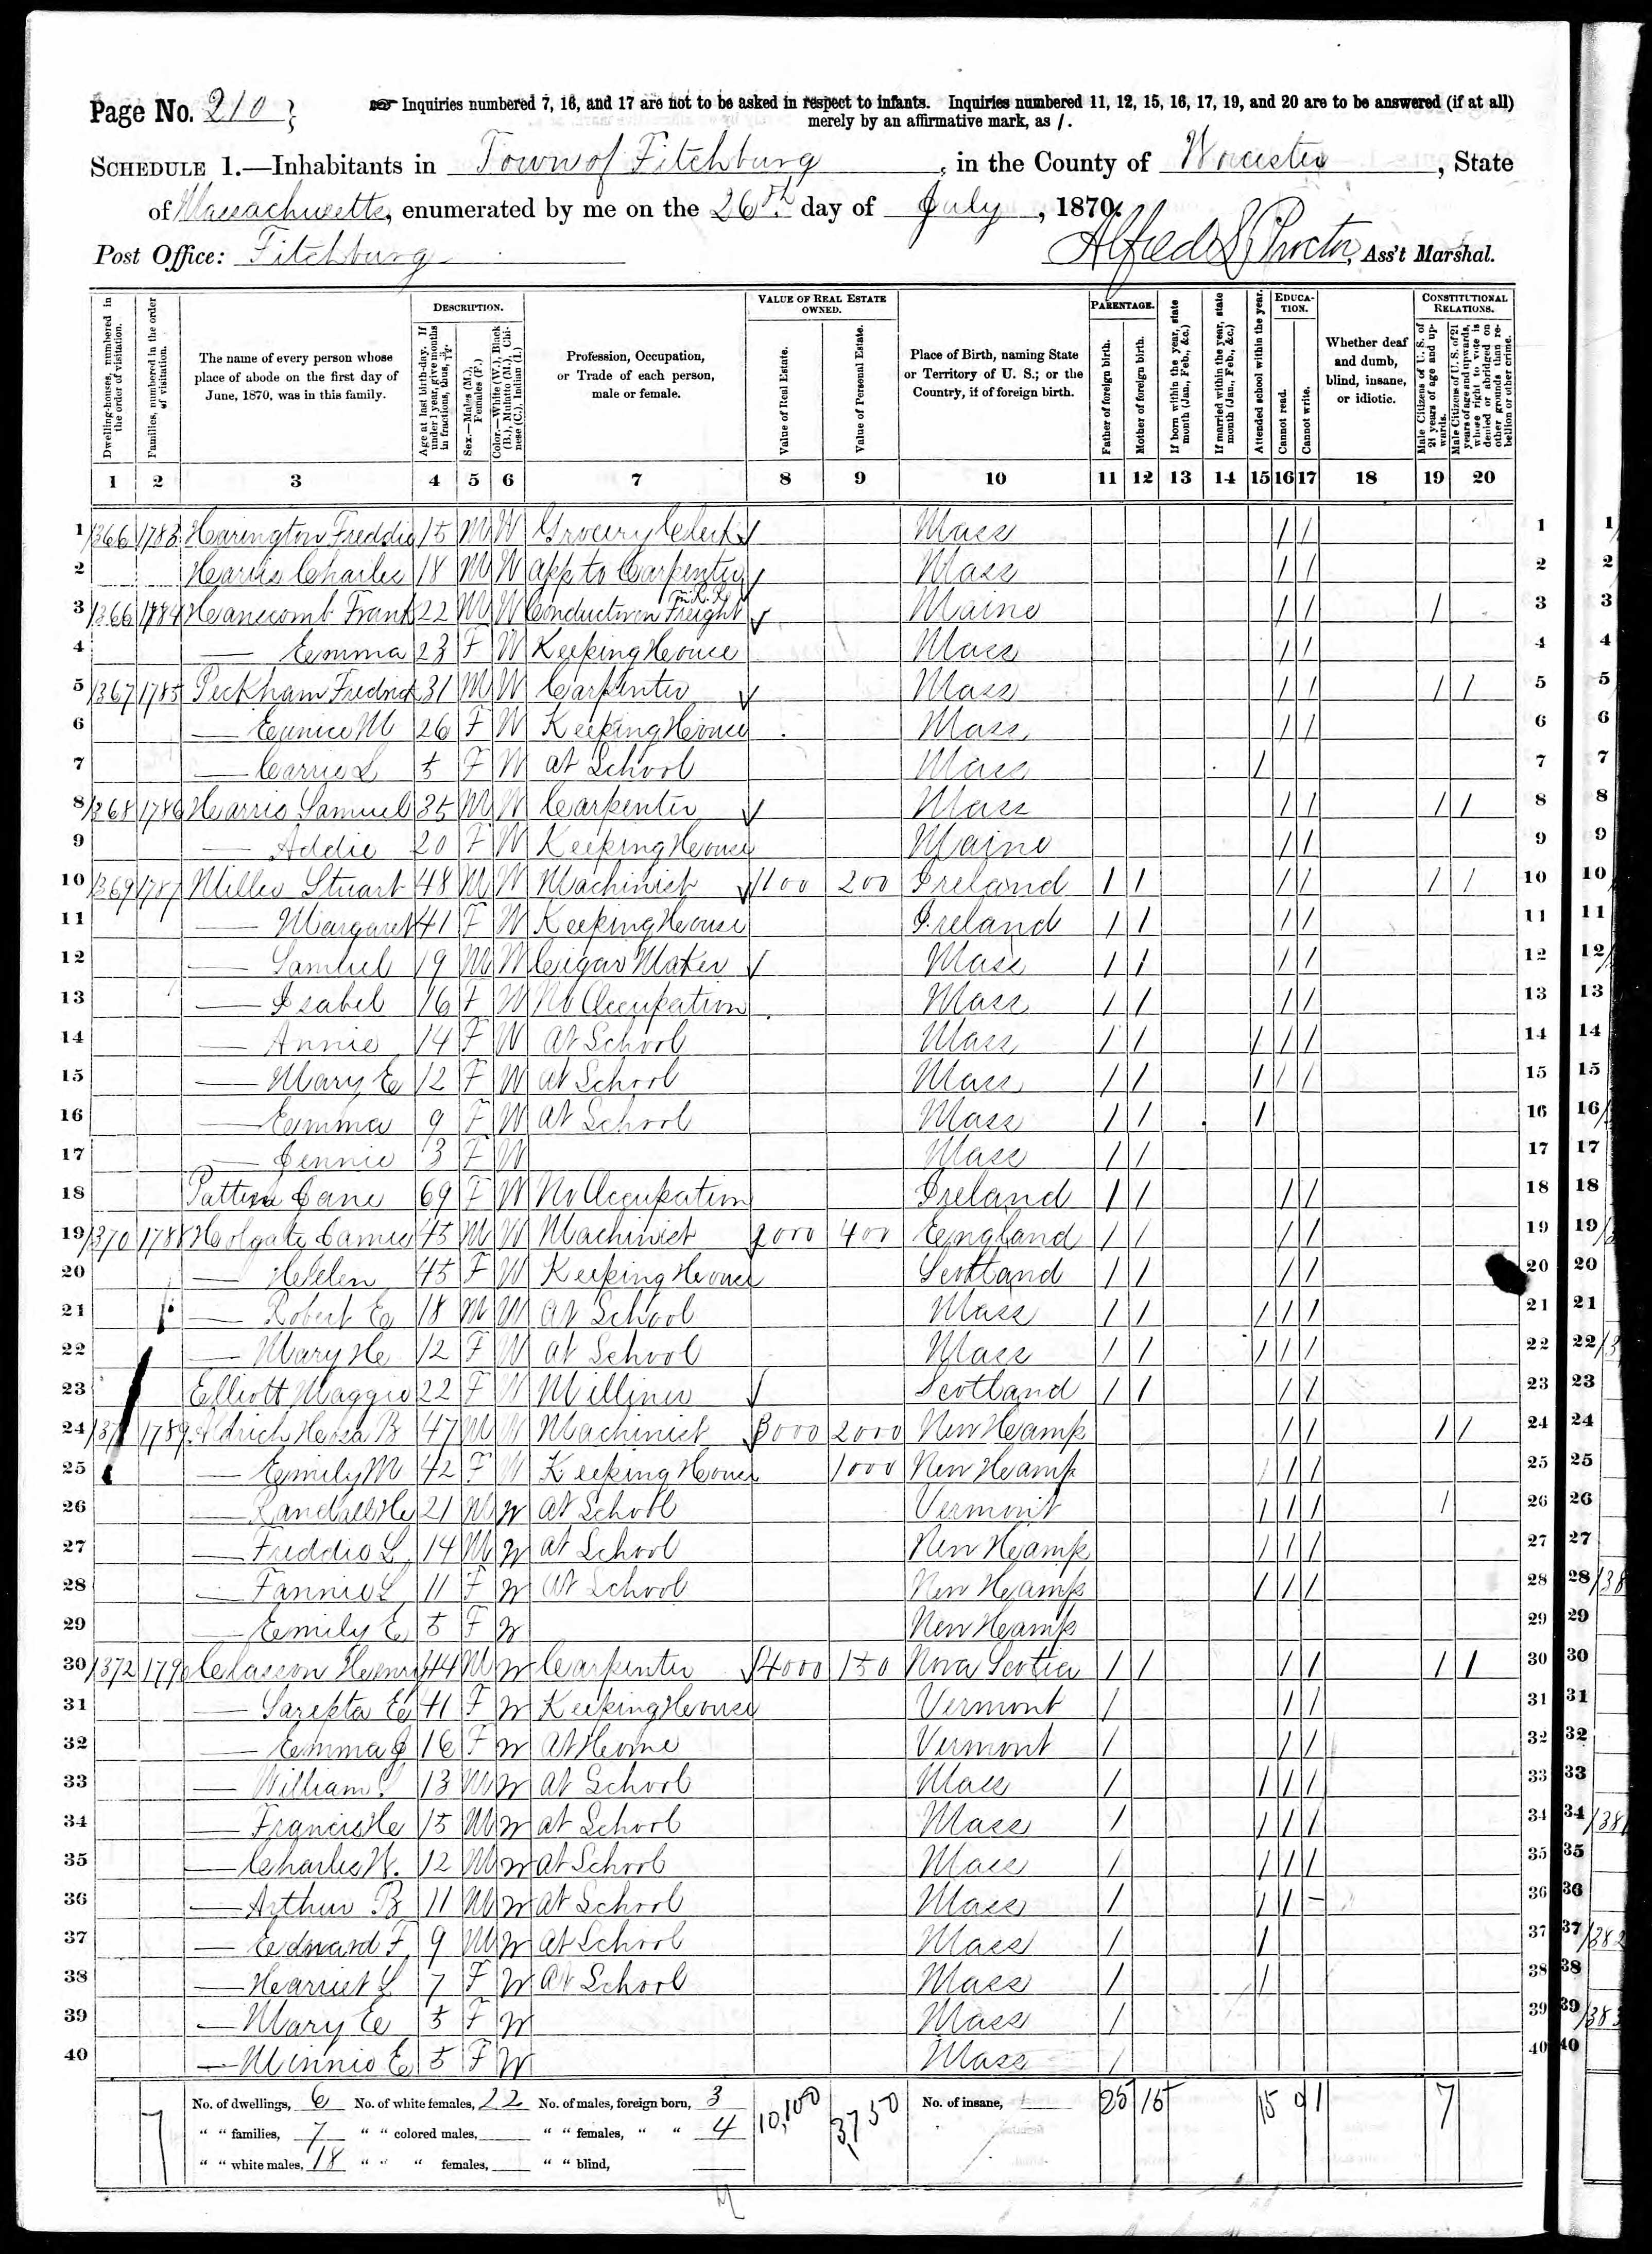 Page No. 210
☞ Inquiries numbered 7, 16, and 17 are not to be asked in respect to infants. Inquiries numbered 11, 12, 15, 16, 17, 19, and 20 are to be answered (if at all)
merely by an affirmative mark, as /.
SCHEDULE 1.—Inhabitants in Town of Fitchburg, in the County of Worcester, State
of Massachusetts, enumerated by me on the 26th. day of July, 1870.
Post Office: Fitchburg Alfred S Proctor, Ass't Marshal.
Dwelling-houses, numbered in the order of visitation.
Families, numbered in the order of visitation.
The name of every person whose place of abode on the first day of June, 1870, was in this family.
DESCRIPTION.
Age at last birth-day. If under 1 year, give months in fractions, thus,
Sex.—Males (M.), Females (F.)
Color.—White (W.), Black (B.), Mulatto (M.), Chinese (C.), Indian (I.)
Profession, Occupation, or Trade of each person, male or female.
VALUE OF REAL ESTATE OWNED.
Value of Real Estate.
Value of Personal Estate.
Place of Birth, naming State or Territory of U. S.; or the Country, if of foreign birth.
PARENTAGE.
Father of foreign birth.
Mother of foreign birth.
If born within the year, state month (Jan., Feb., &c.)
If married within the year, state month (Jan., Feb., &c.)
Attended school within the year.
EDUCATION.
Cannot read.
Cannot write.
Whether deaf and dumb, blind, insane, or idiotic.
CONSTITUTIONAL RELATIONS.
Male Citizens of U. S. of 21 years of age and upwards.
Male Citizens of U. S. of 21 years of age and upwards, whose right to vote is denied or abridged on other grounds than rebellion or other crime.
1 2 3 4 5 6 7 8 9 10 11 12 13 14 15 16 17 18 19 20
1 1366 1783 Harington Freddie 15 M W Grocery Clerk Mass / / 1
2 Harris Charles 18 M W app to Carpenter Mass / / 2
3 1366 1784 Hanscomb Frank 22 M W Conductor on Freight Maine / / / 3
4 — Emma 23 F W Keeping House Mass / / 4
5 1367 1785 Peckham Fredrick 31 M W Carpenter Mass / / / / 5
6 — Eunice M 26 F W Keeping House Mass / / 6
7 — Carrie L 5 F W at School Mass / 7
8 1368 1786 Harris Samuel 35 M W Carpenter Mass / / / / 8
9 — Addie 20 F W Keeping House Maine / / 9
10 1369 1787 Miller Stuart 48 M W Machinist 1100 200 Ireland / / / / / / 10
11 — Margaret 41 F W Keeping House Ireland / / / / 11
12 — Samuel 19 M W Cigar Maker Mass / / / / 12
13 — Isabel 16 F W No Occupation Mass / / / / 13
14 — Annie 14 F W At School Mass / / / / / 14
15 — Mary E 12 F W at School Mass / / / / / 15
16 — Emma 9 F W at School Mass / / / 16
17 — Jennie 3 F W Mass / / 17
18 Patten Jane 69 F W No Occupation Ireland / / / / 18
19 1370 1788 Holgate James 45 M W Machinist 2000 400 England / / / / 19
20 — Helen 45 F W Keeping House Scotland / / / / 20
21 — Robert E 18 M W at School Mass / / / / / 21
22 — Mary H 12 F W at School Mass / / / / / 22
23 Elliott Maggie 22 F W Milliner Scotland / / / / 23
24 1371 1789 Aldrich Hosea B 47 M W Machinist 3000 2000 New Hamp / / / / 24
25 — Emily M 42 F W Keeping House 1000 New Hamp / / 25
26 — Randall H 21 M W at School Vermont / / / / 26
27 — Freddie L 14 M W at School New Hamp / / / 27
28 — Fannie L 11 F W at School New Hamp / / / 28
29 — Emily E 5 F W New Hamp 29
30 1372 1790 Classon Henry 44 M W Carpenter 4000 150 Nova Scotia / / / / / / 30
31 — Sarepta E 41 F W Keeping House Vermont / / / 31
32 — Emma J 16 F W At Home Vermont / / / 32
33 — William 13 M W at School Mass / / / / 33
34 — Francis H 15 M W at School Mass / / / / 34
35 — Charles W. 12 M W at School Mass / / / / 35
36 — Arthur B 11 M W at School Mass / / / – 36
37 — Edward F. 9 M W at School Mass / / 37
38 — Harriet L 7 F W at School Mass / / 38
39 — Mary E 5 F W Mass / 39
40 — Minnie E 5 F W Mass / 40
No. of dwellings, 6 No. of white females, 22 No. of males, foreign born, 3 10,100 3,750 No. of insane, 25 15 15 9 1 7
" " families, 7 " " colored males, " " females, " " 4
" " white males, 18 " " " females, " " blind,